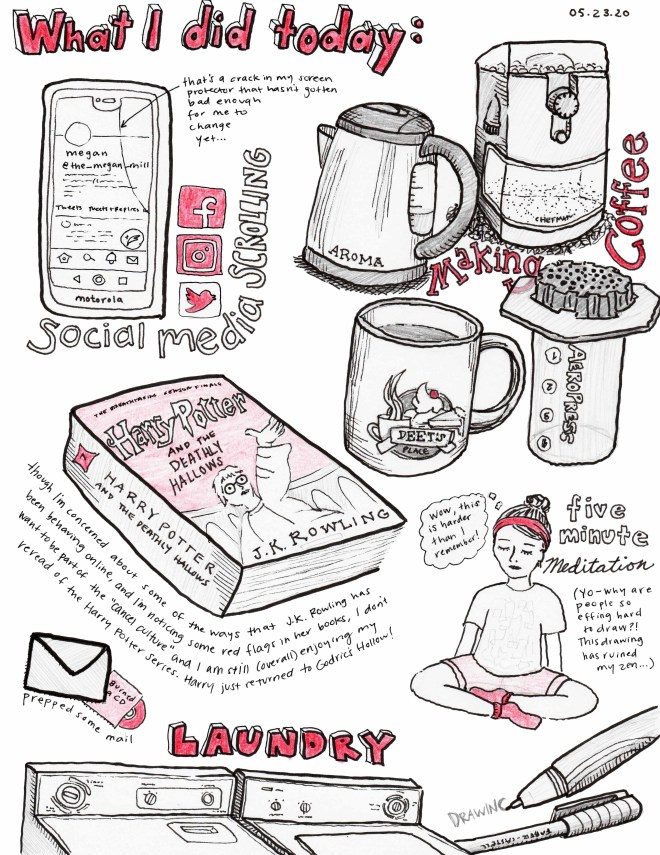 What I did today:
05.23.20
that's a crack in my screen
protector that hasn't gotten
bad enough
for me to
change
yet...
megan
@the_megan_mill
Tweets Tweets+Replies
motorola
Social media SCROLLING
AROMA
CHEFMAN
Making
Coffee
AEROPRESS
1
2
3
4
DEET'S
PLACE
Harry Potter
AND THE
DEATHLY
HALLOWS
J.K. ROWLING
HARRY POTTER
AND THE DEATHLY HALLOWS
7
though I'm concerned about some of the ways that J.K. Rowling has
been behaving online, and I'm noticing some red flags in her books, I don't
want to be part of the "cancel culture" and I am still (overall) enjoying my
reread of the Harry Potter series. Harry just returned to Godric's Hollow!
wow, this
is harder
than I
remember!
five
minute
Meditation
(Yo-why are
people so
effing hard
to draw?!
This drawing
has ruined
my zen...)
Burned
a CD
prepped some mail
LAUNDRY
DRAWING
FABER-CASTELL